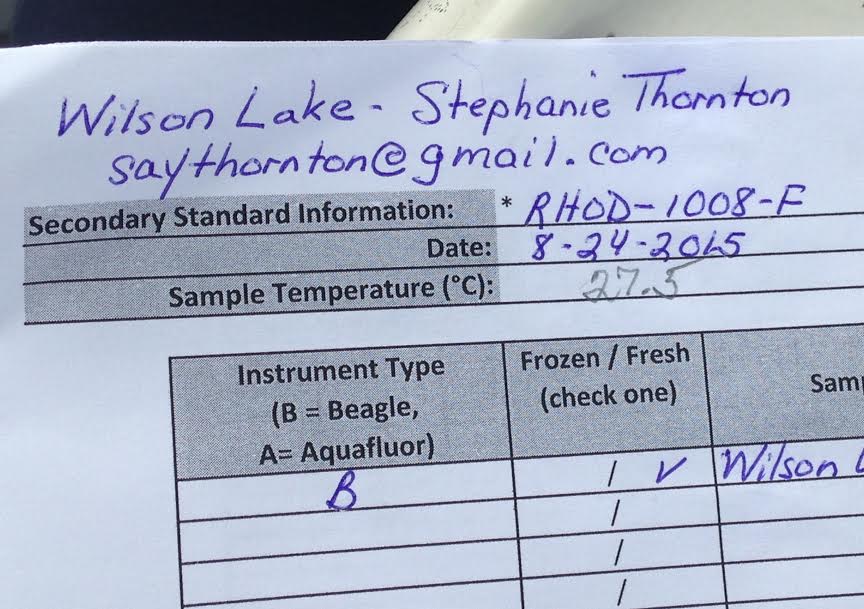 Wilson Lake - Stephanie Thornton
saythornton@gmail.com
Secondary Standard Information: * RHOD-1008-F
Date: 8-24-2015
Sample Temperature (°C): 27.5
Instrument Type
(B = Beagle,
A= Aquafluor)
Frozen / Fresh
(check one)
Sam
B / ✓ Wilson L
/
/
/